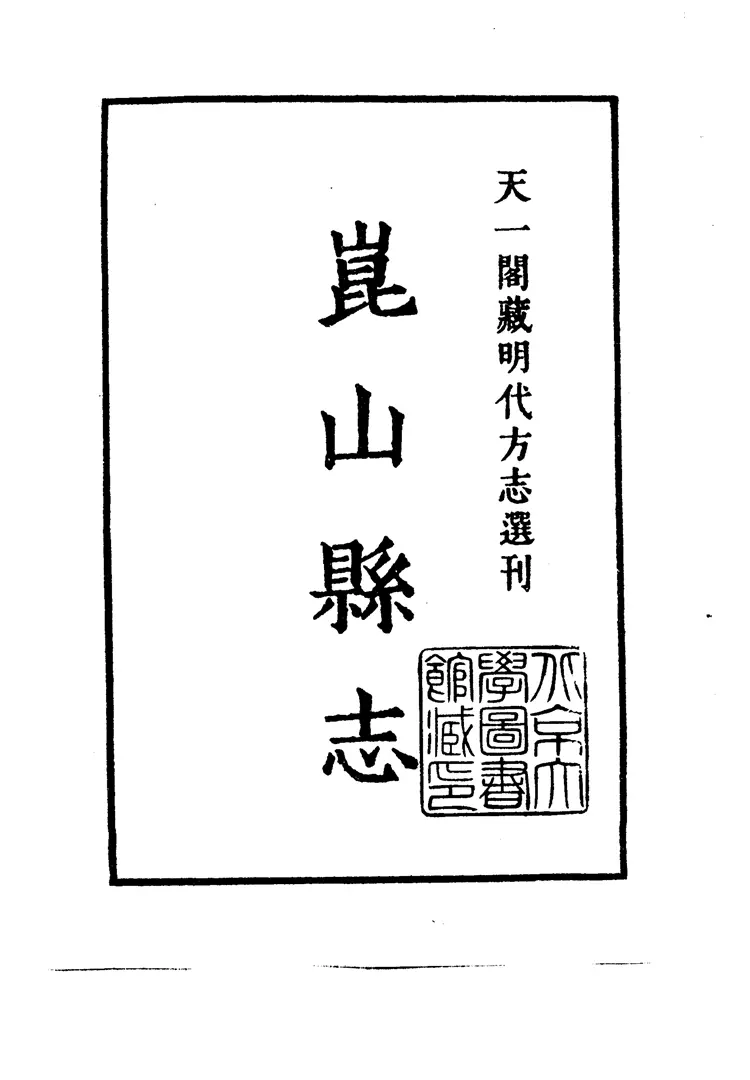 天一閣藏明代方志選刊
崑山縣志
北京大
學圖書
館藏印